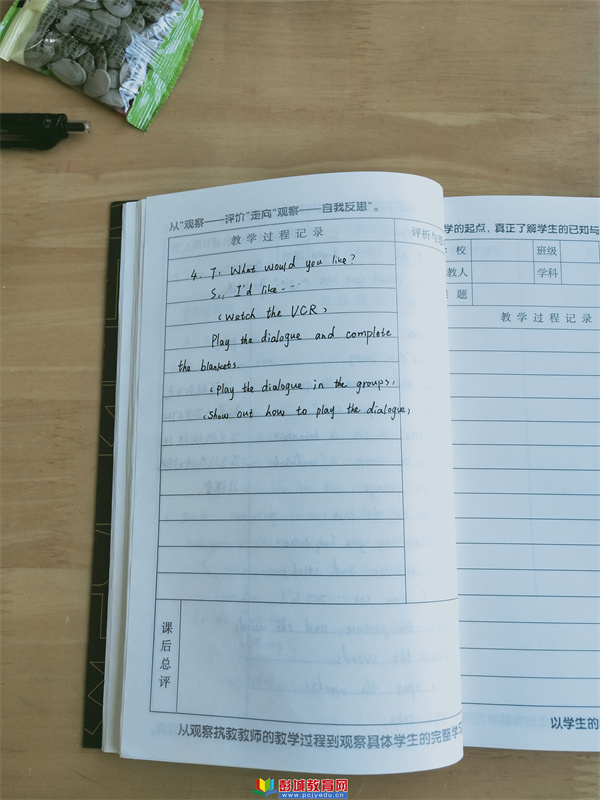 从“观察——评价”走向“观察——自我反思”。
教学过程记录
评析与
4. T: What would you like?
S: I'd like...
(Watch the VCR)
Play the dialogue and complete
the blankets.
(Play the dialogue in the groups)
(Show out how to play the dialogue)
课后总评
从观察执教教师的教学过程到观察具体学生的完整学
学的起点，真正了解学生的已知与
校
班级
教人
学科
题
教学过程记录
以学生的
彭城教育网
www.pcjyedu.cn